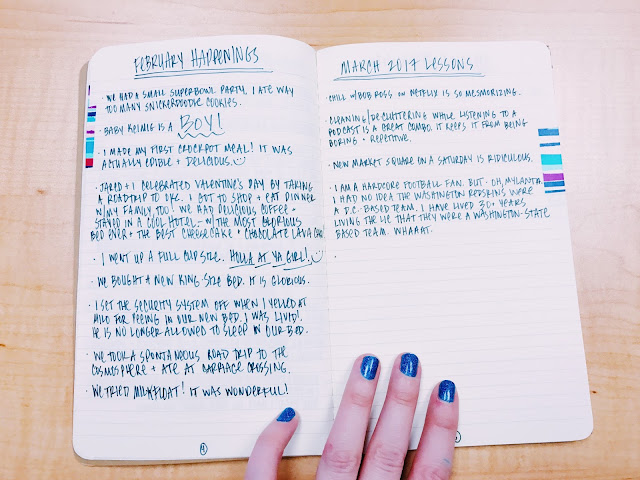 FEBRUARY HAPPENINGS
· WE HAD A SMALL SUPERBOWL PARTY. I ATE WAY
TOO MANY SNICKERDOODLE COOKIES.
· BABY KEIMIG IS A BOY!
· I MADE MY FIRST CROCKPOT MEAL! IT WAS
ACTUALLY EDIBLE + DELICIOUS.
· JARED + I CELEBRATED VALENTINE'S DAY BY TAKING
A ROADTRIP TO OKC. I GOT TO SHOP + EAT DINNER
W/MY FAMILY, TOO! WE HAD DELICIOUS COFFEE +
STAYED IN A COOL HOTEL - W/THE MOST GLORIOUS
BED EVER + THE BEST CHEESECAKE + CHOCOLATE LAVA CAKE!
· I WENT UP A FULL CUP SIZE. HOLLA AT YA GIRL!
· WE BOUGHT A NEW KING SIZE BED. IT IS GLORIOUS.
· I SET THE SECURITY SYSTEM OFF WHEN I YELLED AT
MILO FOR PEEING IN OUR NEW BED. I WAS LIVID!
HE IS NO LONGER ALLOWED TO SLEEP IN OUR BED.
· WE TOOK A SPONTANEOUS ROAD TRIP TO THE
COSMOSPHERE + ATE AT CARRIAGE CROSSING.
· WE TRIED MILKFLOAT! IT WAS WONDERFUL!
MARCH 2017 LESSONS
· CHILL W/BOB ROSS ON NETFLIX IS SO MESMORIZING.
· CLEANING/DECLUTTERING WHILE LISTENING TO A
PODCAST IS A GREAT COMBO. IT KEEPS IT FROM BEING
BORING + REPETITIVE.
· NEW MARKET SQUARE ON A SATURDAY IS RIDICULOUS.
· I AM A HARDCORE FOOTBALL FAN. BUT · OH, MYLANTA.
I HAD NO IDEA THE WASHINGTON REDSKINS WERE
A D.C.-BASED TEAM. I HAVE LIVED 30+ YEARS
LIVING THE LIE THAT THEY WERE A WASHINGTON-STATE
BASED TEAM. WHAAAT.
·